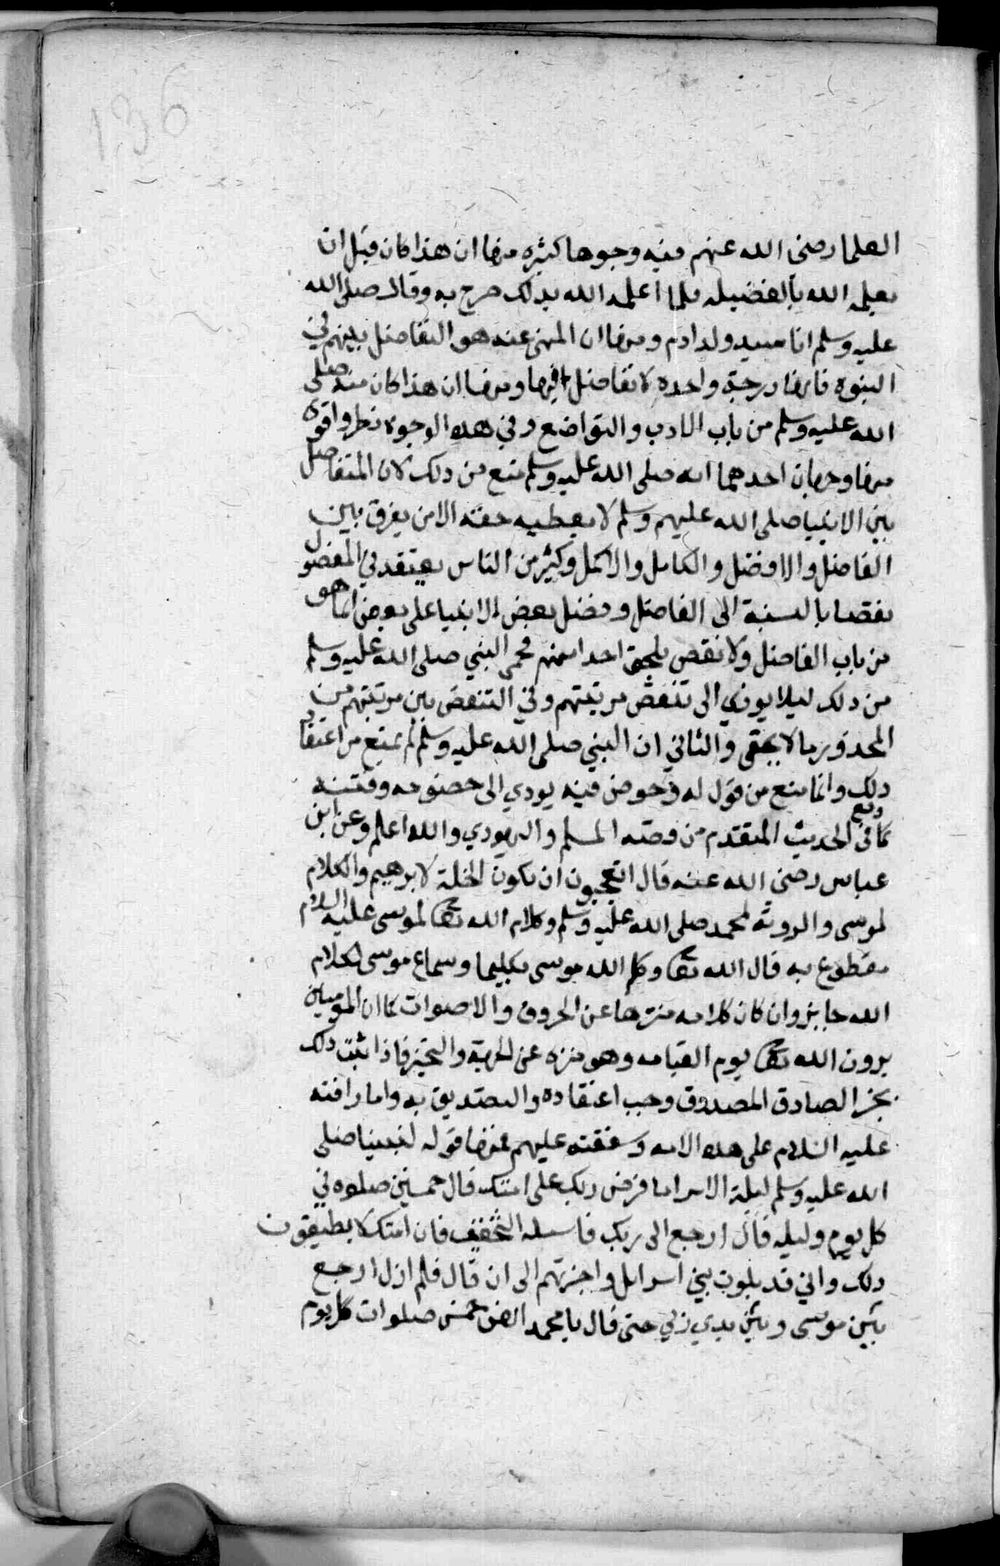 136
العلما رضى الله عنهم فيه وجوها كثيره منها ان هذا كان قبل ان
يعلمه الله بالفضيله فلما اعلمه الله بذلك صرح به وقال صلى الله
عليه وسلم انا سيد ولد ادم ومنها ان المنهى عنه هو التفاضل بينهم في
النبوه فانها درجة واحده لا تفاضل فيها ومنها ان هذا كان منه صلى
الله عليه وسلم من باب الادب والتواضع وفي هذه الوجوه نظر واقوى
منها وجهان احدهما انه صلى الله عليه وسلم منع من ذلك لان المتفاضل
بين الانبيا صلى الله عليهم وسلم لا يعطيه حقه الا من يفرق بين
الفاضل والافضل والكامل والاكمل وكثير من الناس يعتقد في المفضول
نقصا بالنسبة الى الفاضل وفضل بعض الانبيا على بعض انما هو
من باب الفاضل ولا نقص يلحق احدا منهم فحمى النبي صلى الله عليه وسلم
من ذلك ليلا يودي الى تنقص مرتبتهم وفي التنقص من مرتبتهم من
المحذور ما لا يخفى والثاني ان النبي صلى الله عليه وسلم لم يمنع من اعتقاد
ذلك وانما منع من قول له وخوض فيه يودي الى خصومه وفتنه
كما وقع في الحديث المتقدم من قصه المسلم واليهودي والله اعلم وعن ابن
عباس رضى الله عنه قال اتعجبون ان تكون الخلة لابرهيم والكلام
لموسى والرويه لمحمد صلى الله عليه وسلم وكلام الله تعا لموسى عليه السلام
مقطوع به قال الله تعا وكلم الله موسى تكليما وسماع موسى لكلام
الله جايز وان كان كلامه منزها عن الحروف والاصوات كما ان المومنين
يرون الله تعا يوم القيامه وهو منزه عن الجهة والتحيز فاذا ثبت ذلك
بخبر الصادق المصدوق وجب اعتقاده والتصديق به واما رافته
عليه السلام على هذه الامه وشفقته عليهم فمنها قوله لنبينا صلى
الله عليه وسلم ليلة الاسرا ما فرض ربك على امتك قال خمسين صلوه في
كل يوم وليله قال ارجع الى ربك فاسله التخفيف فان امتك لا يطيقون
ذلك واني قد بلوت بني اسرايل واخبرتهم الى ان قال فلم ازل ارجع
بين موسى وبين يدي ربي حتى قال يا محمد انهن خمس صلوات كل يوم